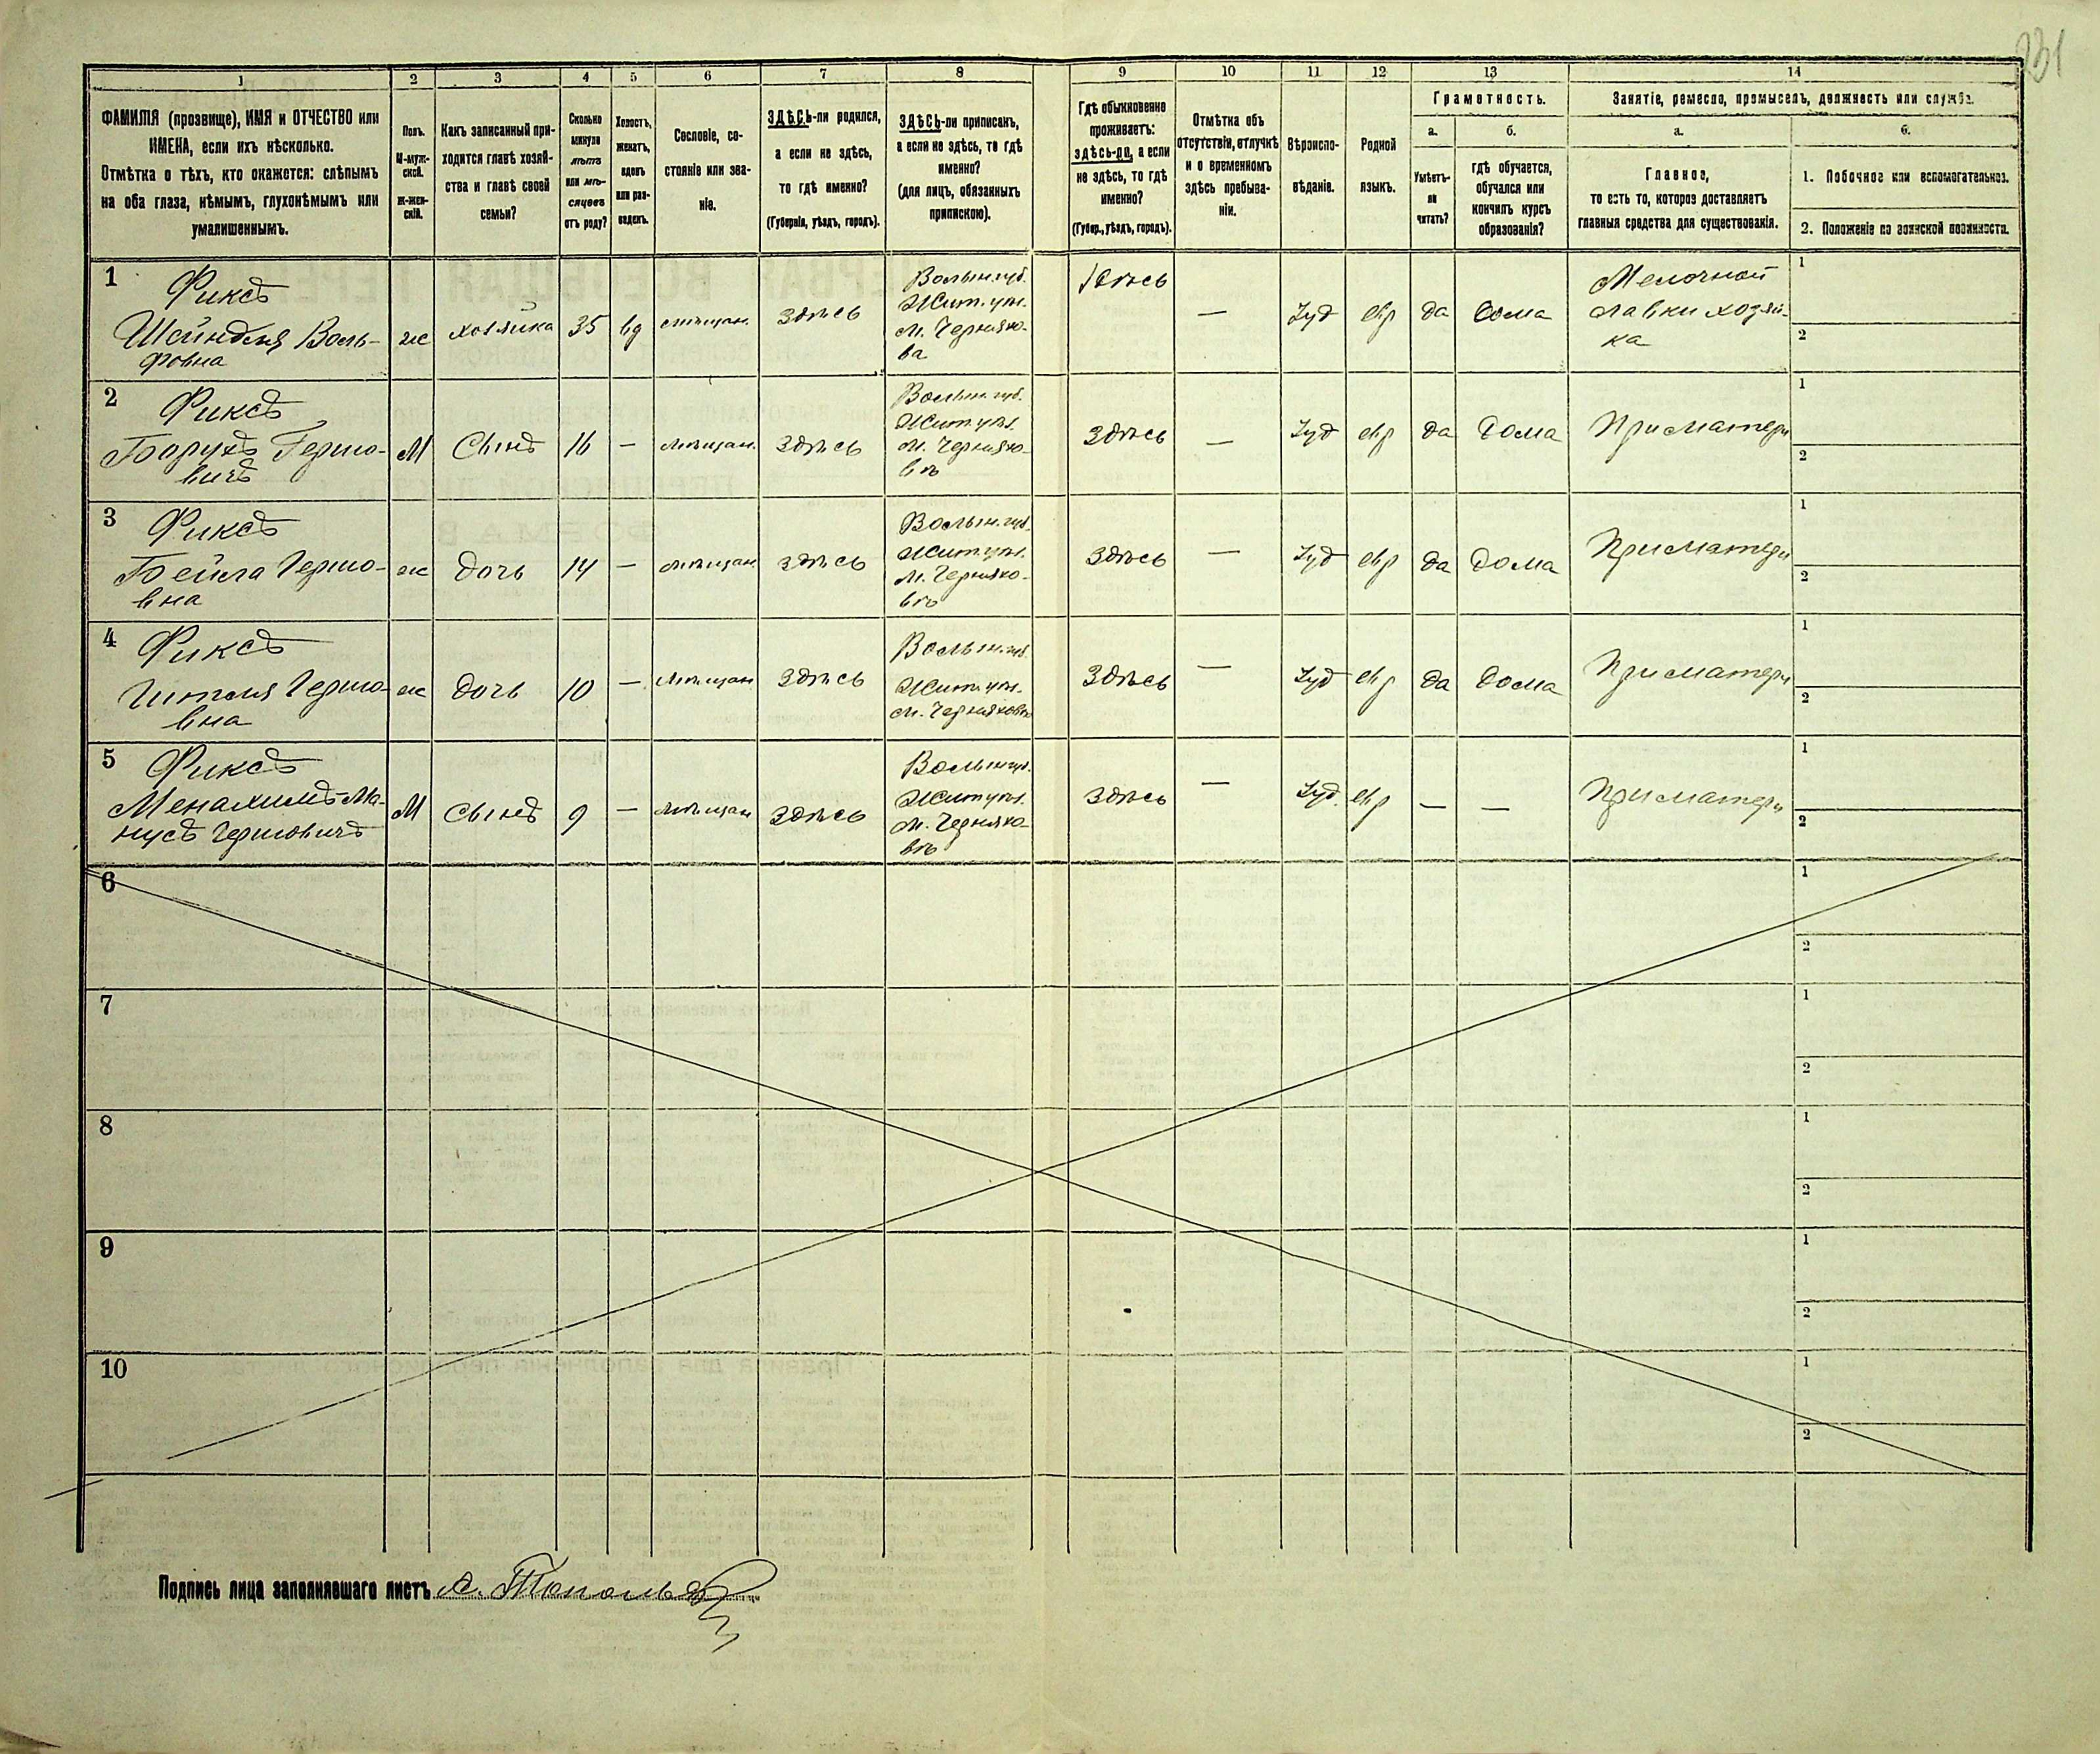 231
1 2 3 4 5 6 7 8 9 10 11 12 13 14
ФАМИЛІЯ (прозвище), ИМЯ и ОТЧЕСТВО или
ИМЕНА, если ихъ нѣсколько.
Отмѣтка о тѣхъ, кто окажется: слѣпымъ
на оба глаза, нѣмымъ, глухонѣмымъ или
умалишеннымъ.
Полъ.
М-муж-
ской.
Ж-жен-
скій.
Какъ записанный при-
ходится главѣ хозяй-
ства и главѣ своей
семьи?
Сколько
минуло
лѣтъ
или мѣ-
сяцевъ
отъ роду?
Холостъ,
женатъ,
вдовъ
или раз-
веденъ.
Сословіе, со-
стояніе или зва-
ніе.
ЗДѢСЬ-ли родился,
а если не здѣсь,
то гдѣ именно?
(Губернія, уѣздъ, городъ).
ЗДѢСЬ-ли приписанъ,
а если не здѣсь, то гдѣ
именно?
(для лицъ, обязанныхъ
припискою).
Гдѣ обыкновенно
проживаетъ:
здѣсь-ли, а если
не здѣсь, то гдѣ
именно?
(Губер., уѣздъ, городъ).
Отмѣтка объ
отсутствіи, отлучкѣ
и о временномъ
здѣсь пребыва-
ніи.
Вѣроиспо-
вѣданіе.
Родной
языкъ.
Грамотность.
а. б.
Умѣетъ-
ли
читать?
гдѣ обучается,
обучался или
кончилъ курсъ
образованія?
Занятіе, ремесло, промыселъ, должность или служба.
а. б.
Главное,
то есть то, которое доставляетъ
главныя средства для существованія.
1. Побочное или вспомогательное.
2. Положеніе по воинской повинности.
1 Фиксъ
Шейндля Воль-
фовна
ж хозяйка 35 вд мѣщан. здѣсь
Волын. губ.
Жит. уѣз.
м. Черняхо-
ва
Здѣсь — Іуд евр да дома
Мелочной
лавки хозяй-
ка
1
2
2 Фиксъ
Борухъ Гершо-
вичъ
М Сынъ 16 — мѣщан. здѣсь
Волын. губ.
Жит. уѣз.
м. Черняхо-
вѣ
Здѣсь — Іуд евр да дома При матери
1
2
3 Фиксъ
Бейла Гершо-
вна
ж дочь 14 — мѣщан здѣсь
Волын. губ.
Жит. уѣз.
м. Черняхо-
вѣ
Здѣсь — Іуд евр да дома При матери
1
2
4 Фиксъ
Гителя Гершо-
вна
ж дочь 10 — мѣщан здѣсь
Волын. губ.
Жит. уѣз.
м. Черняховѣ
Здѣсь — Іуд евр да дома При матери
1
2
5 Фиксъ
Менахимъ Ма-
нусъ Гершовичъ
М сынъ 9 — мѣщан здѣсь
Волын губ.
Жит уѣз.
м. Черняхо-
вѣ
Здѣсь — Іуд. евр — — При матери
1
2
6
1
2
7
1
2
8
1
2
9
1
2
10
1
2
Подпись лица заполнявшаго листъ А.